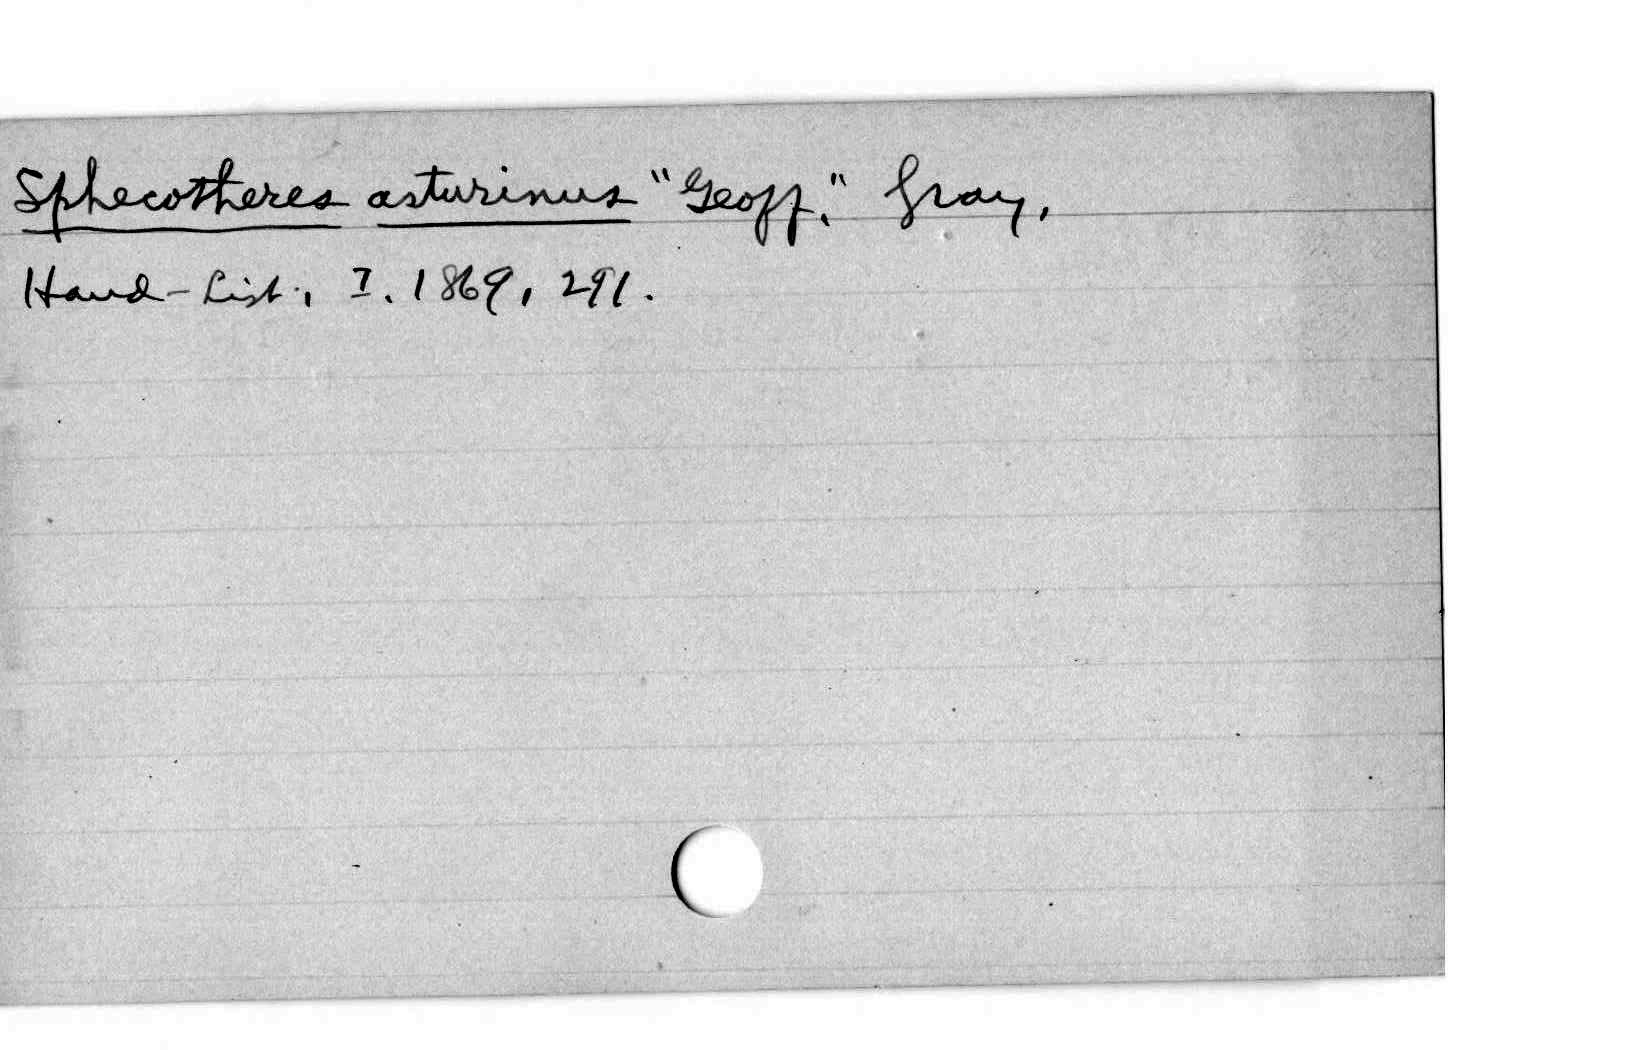 Sphecotheres asturinus "Geoff." Gray,
Hand-List., I. 1869, 291.